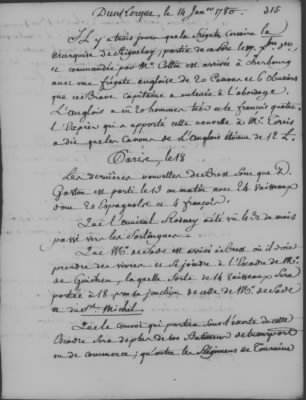 Dunkerque, le 14 Janer. 1780. 315
Il y a trois jours que la frégate corsaire la
Marquise de Seignelay, partie de au
et commandée par Mr. Cottin est arrivée à cherbourg
avec une frégate angloise de 20 Canons et 6 obusiers
que ce Brave Capitaine a enlevée à l'abordage.
L'Anglois a eu 20 hommes tués et le françois quatre.
L'Exprès qui a apporté cette nouvelle à Mr.
a dit que les Canons de l'Anglois étoient de 12 £.
Paris, le 18
Les dernières nouvelles de Brest sont que D.
Gaston est parti le 13 au matin avec 24 Vaisseaux
dont 20 Espagnols et 4 françois.
Que l'amiral Rodney a été vu le 31 du mois
passé vers les Sorlingues.
Que Mr. de Sade est arrivé à Brest où il doit
prendre des vivres et se joindre à l'Escadre de Mr.
de Guichen, laquelle forte de 14 Vaisseaux sera
portée à 18 par sa jonction de celle de Mr. de Sade
et du St. Michel.
Que le convoi qui partira sous l'escorte de cette
Escadre sera de plus de 100 Batimens de transport
ou de commerce; qu'outre les Régimens de Touraine